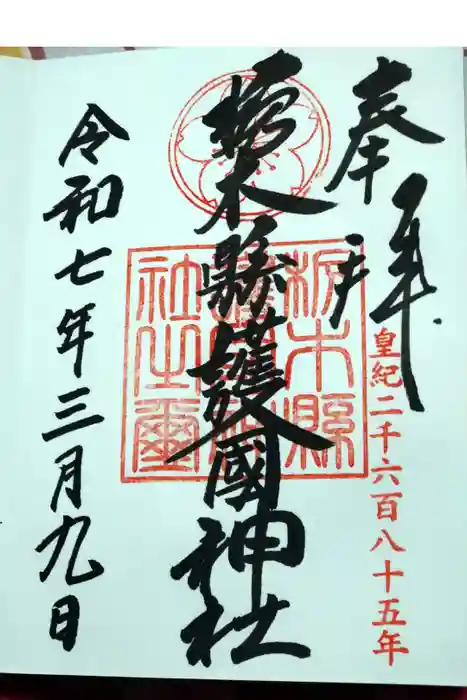 奉拝
皇紀二千六百八十五年
栃木縣護國神社
栃木縣
護國神
社之璽
令和七年三月九日